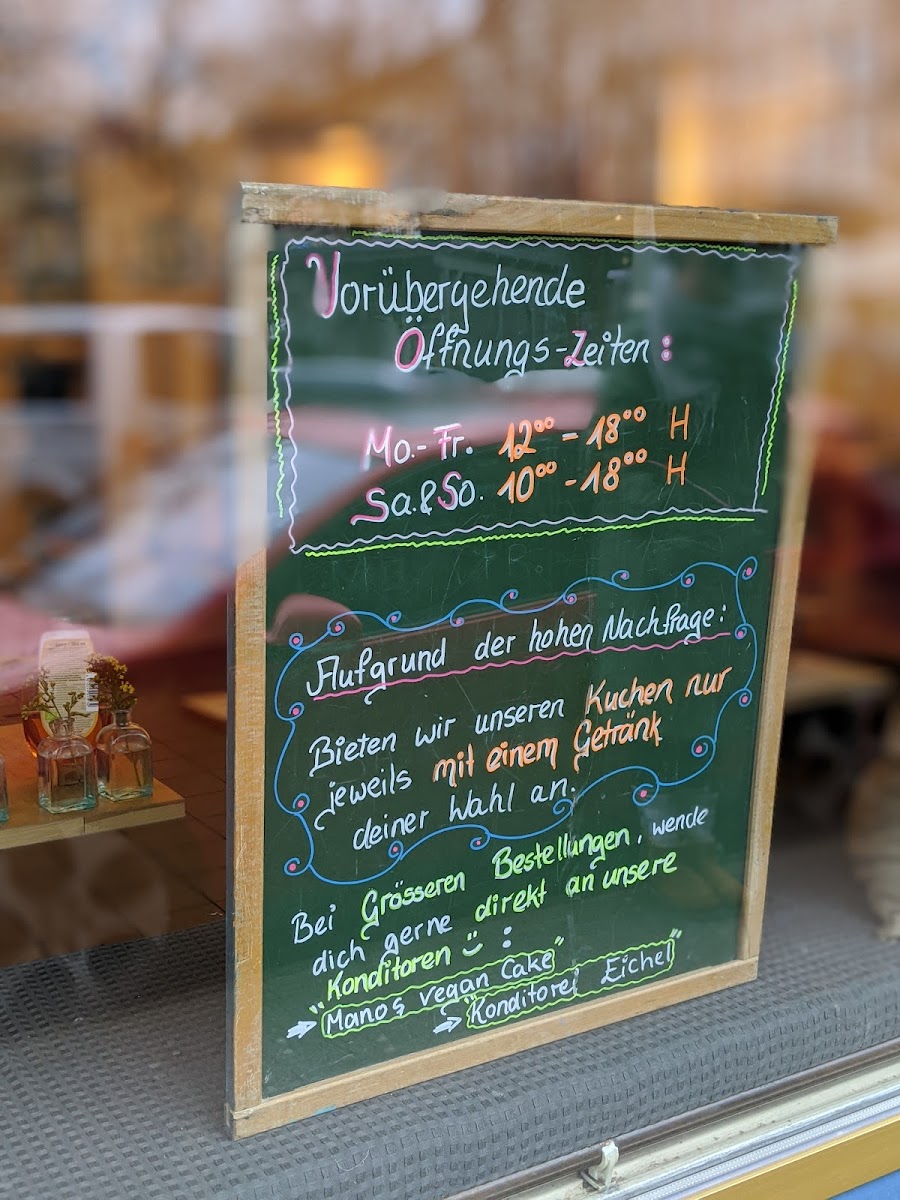 Vorübergehende
Öffnungs-Zeiten:
Mo.-Fr. 12⁰⁰ - 18⁰⁰ H
Sa.&So. 10⁰⁰ - 18⁰⁰ H
Aufgrund der hohen Nachfrage:
Bieten wir unseren Kuchen nur
jeweils mit einem Getränk
deiner Wahl an.
Bei Grösseren Bestellungen, wende
dich gerne direkt an unsere
Konditoren :
→ "Manos vegan Cake"
→ "Konditorei Eichel"